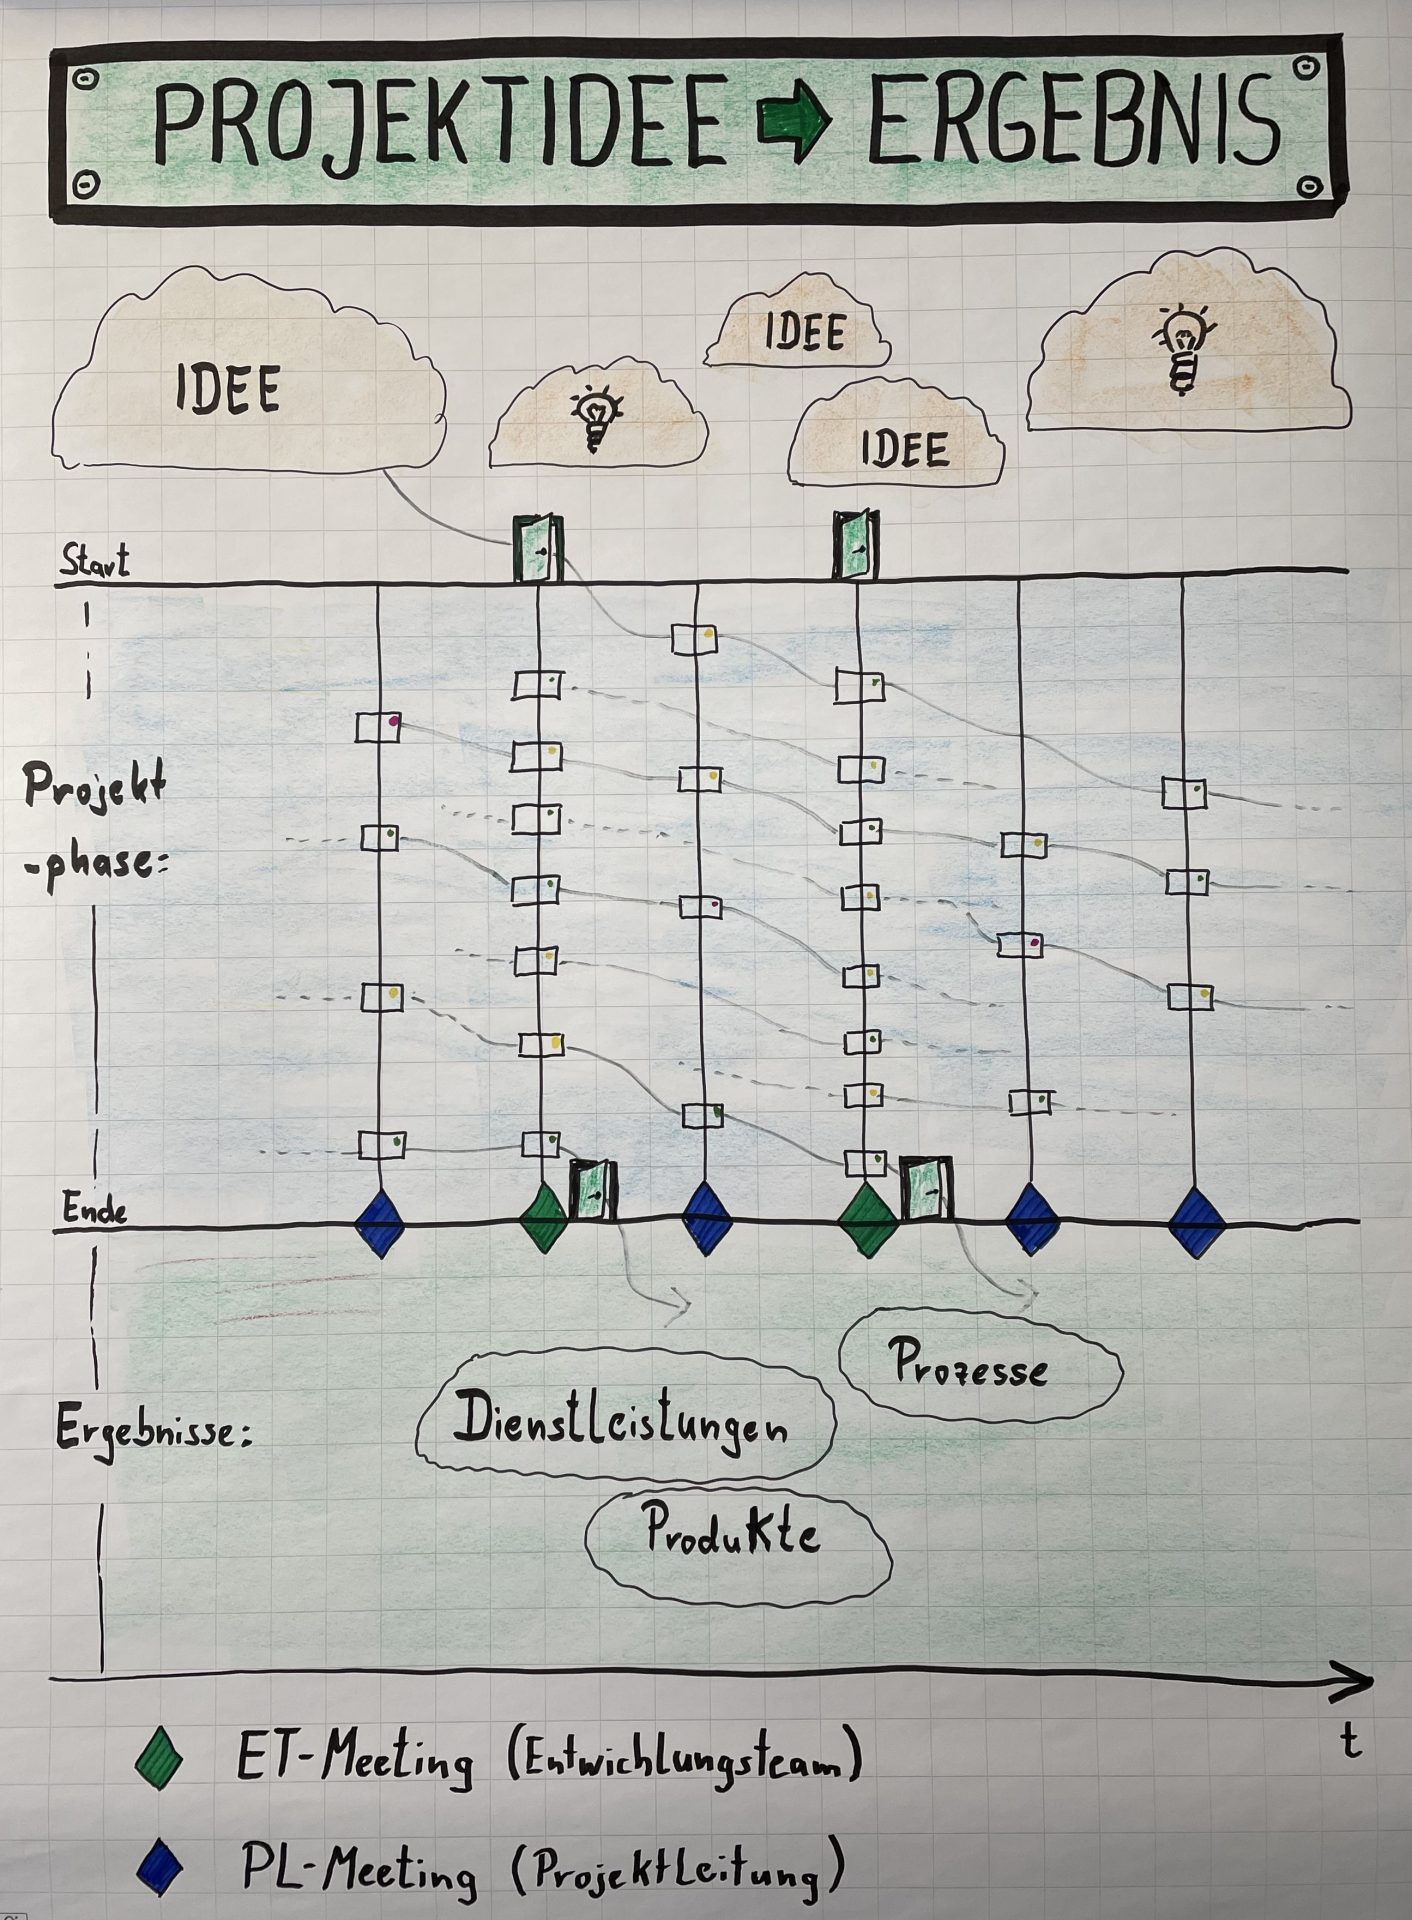 PROJEKTIDEE ERGEBNIS
IDEE
IDEE
IDEE
Start
Projekt
-phase:
Ende
Prozesse
Dienstleistungen
Ergebnisse:
Produkte
t
ET-Meeting (Entwichlungsteam)
PL-Meeting (Projektleitung)